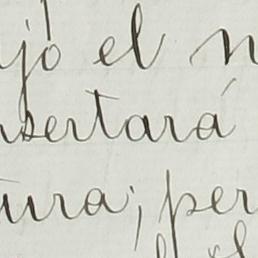 jo el n
nsertará
tura; per